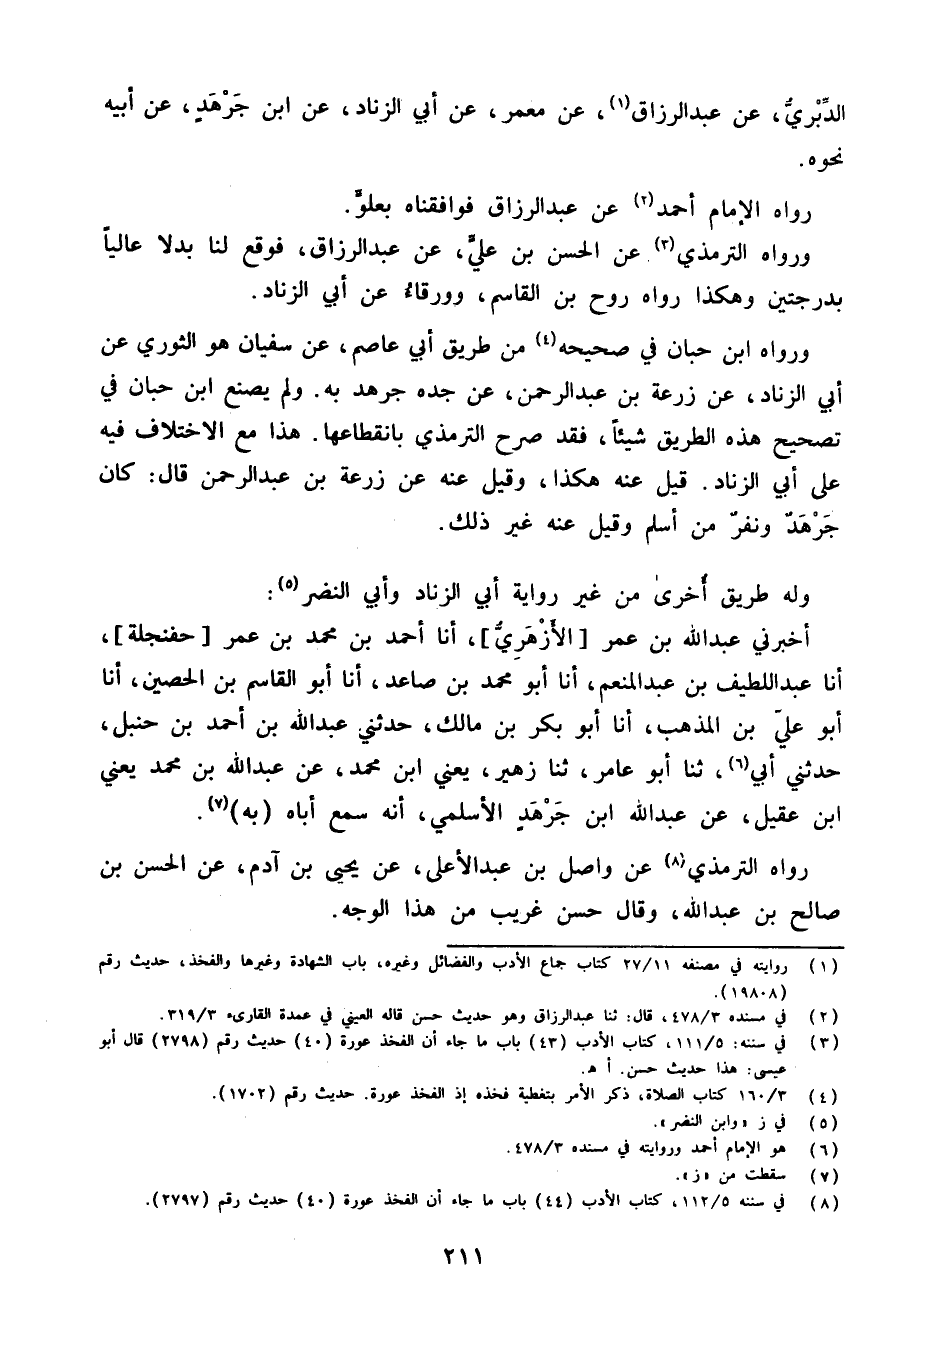 الدَّبَرِيُّ، عن عبدالرزاق(١)، عن معمر، عن أبي الزناد، عن ابن جَرْهَدٍ، عن أبيه
نحوه.
رواه الإمام أحمد(٢) عن عبدالرزاق فوافقناه بعلوٍّ.
ورواه الترمذي(٣) عن الحسن بن عليٍّ، عن عبدالرزاق، فوقع لنا بدلا عالياً
بدرجتين وهكذا رواه روح بن القاسم، وورقاءُ عن أبي الزناد.
ورواه ابن حبان في صحيحه(٤) من طريق أبي عاصم، عن سفيان هو الثوري عن
أبي الزناد، عن زرعة بن عبدالرحمن، عن جده جرهد به. ولم يصنع ابن حبان في
تصحيح هذه الطريق شيئاً، فقد صرح الترمذي بانقطاعها. هذا مع الاختلاف فيه
على أبي الزناد. قيل عنه هكذا، وقيل عنه عن زرعة بن عبدالرحمن قال: كان
جَرْهَدٌ ونفرٌ من أسلم وقيل عنه غير ذلك.
وله طريق أُخرىٰ من غير رواية أبي الزناد وأبي النضر(٥):
أخبرني عبدالله بن عمر [الأَزْهَرِيُّ]، أنا أحمد بن محمد بن عمر [حفنجلة]،
أنا عبداللطيف بن عبدالمنعم، أنا أبو محمد بن صاعد، أنا أبو القاسم بن الحصين، أنا
أبو عليّ بن المذهب، أنا أبو بكر بن مالك، حدثني عبدالله بن أحمد بن حنبل،
حدثني أبي(٦)، ثنا أبو عامر، ثنا زهير، يعني ابن محمد، عن عبدالله بن محمد يعني
ابن عقيل، عن عبدالله ابن جَرْهَدٍ الأسلمي، أنه سمع أباه (به)(٧).
رواه الترمذي(٨) عن واصل بن عبدالأعلى، عن يحيى بن آدم، عن الحسن بن
صالح بن عبدالله، وقال حسن غريب من هذا الوجه.
(١) روايته في مصنفه ٢٧/١١ كتاب جماع الأدب والفضائل وغيره، باب الشهادة وغيرها والفخذ، حديث رقم
(١٩٨٠٨).
(٢) في مسنده ٤٧٨/٣، قال: ثنا عبدالرزاق وهو حديث حسن قاله العيني في عمدة القارىء ٣١٩/٣.
(٣) في سننه: ١١١/٥، كتاب الأدب (٤٣) باب ما جاء أن الفخذ عورة (٤٠) حديث رقم (٢٧٩٨) قال أبو
عيسى: هذا حديث حسن. أ هـ.
(٤) ١٦٠/٣ كتاب الصلاة، ذكر الأمر بتغطية فخذه إذ الفخذ عورة. حديث رقم (١٧٠٢).
(٥) في ز «وابن النضر».
(٦) هو الإمام أحمد وروايته في مسنده ٤٧٨/٣.
(٧) سقطت من «ز».
(٨) في سننه ١١٢/٥، كتاب الأدب (٤٤) باب ما جاء أن الفخذ عورة (٤٠) حديث رقم (٢٧٩٧).
٢١١